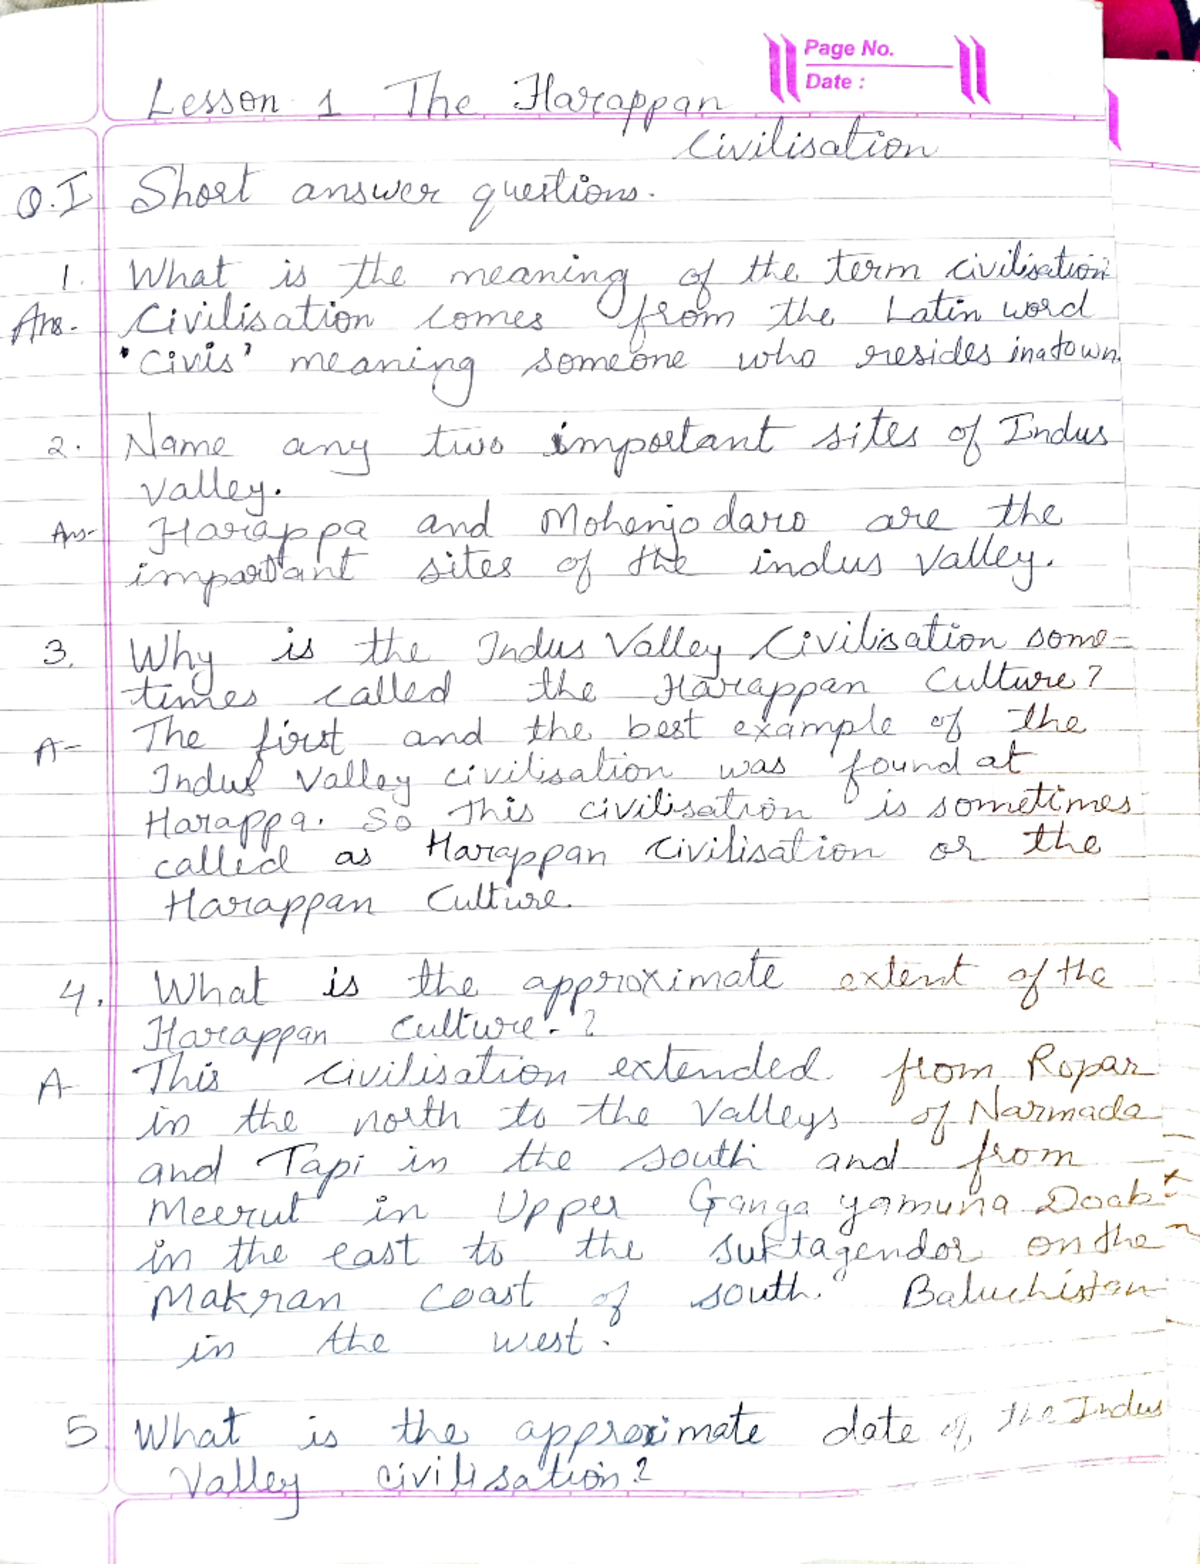 Page No.
Date :
Lesson 1 The Harappan
Civilisation
Q.I Short answer questions.
1. What is the meaning of the term civilisation
Ans. Civilisation comes from the Latin word
'Civis' meaning someone who resides in a town.
2. Name any two important sites of Indus
Valley.
Ans- Harappa and Mohenjo daro are the
important sites of the indus valley.
3. Why is the Indus Valley Civilisation some-
times called the Harappan Culture?
A- The first and the best example of the
Indus Valley civilisation was found at
Harappa. So This civilisation is sometimes
called as Harappan Civilisation or the
Harappan Culture.
4. What is the approximate extent of the
Harappan Culture.?
A- This civilisation extended from Ropar
in the north to the Valleys of Narmada
and Tapi in the south and from
Meerut in Upper Ganga yamuna Doab
in the east to the Suktagendor on the
Makran coast of south. Baluchistan
in the west.
5 What is the approximate date of the Indus
Valley civilisation?